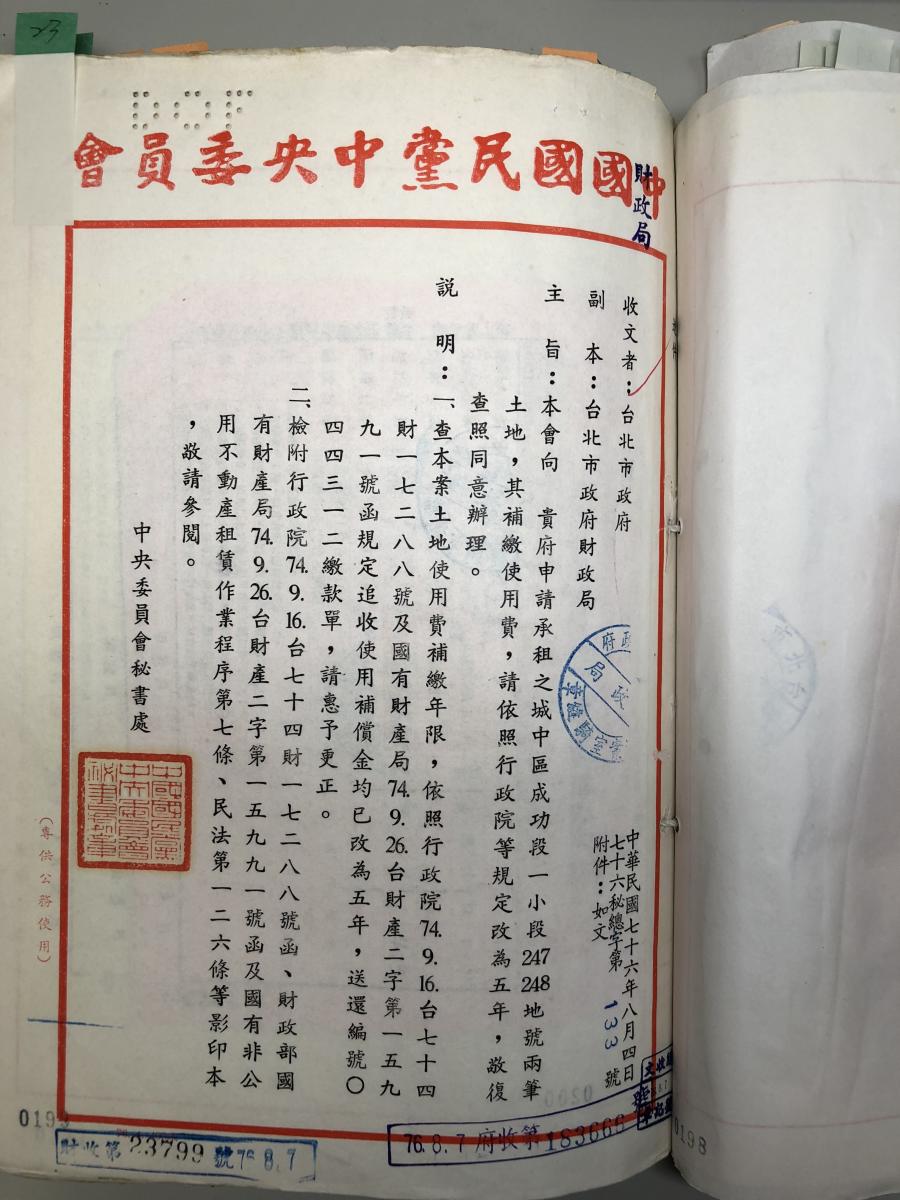 中國國民黨中央委員會
財政局
收文者：台北市政府
副　本：台北市政府財政局
中華民國七十六年八月四日
七十六秘總字第 133 號
附件：如文
主　旨：本會向　貴府申請承租之城中區成功段一小段247 248地號兩筆
土地，其補繳使用費，請依照行政院等規定改為五年，敬復
查照同意辦理。
說　明：一、查本案土地使用費補繳年限，依照行政院74.9.16.台七十四
財一七二八八號及國有財產局74.9.26.台財產二字第一五九
九一號函規定追收使用補償金均已改為五年，送還編號〇
四四三一二繳款單，請惠予更正。
二、檢附行政院74.9.16.台七十四財一七二八八號函、財政部國
有財產局74.9.26.台財產二字第一五九九一號函及國有非公
用不動產租賃作業程序第七條、民法第一二六條等影印本
，敬請參閱。
中央委員會秘書處
（專供公務使用）
76.8.7 府收第183666號
財收第23799號76.8.7
0199
0198
23
DOF